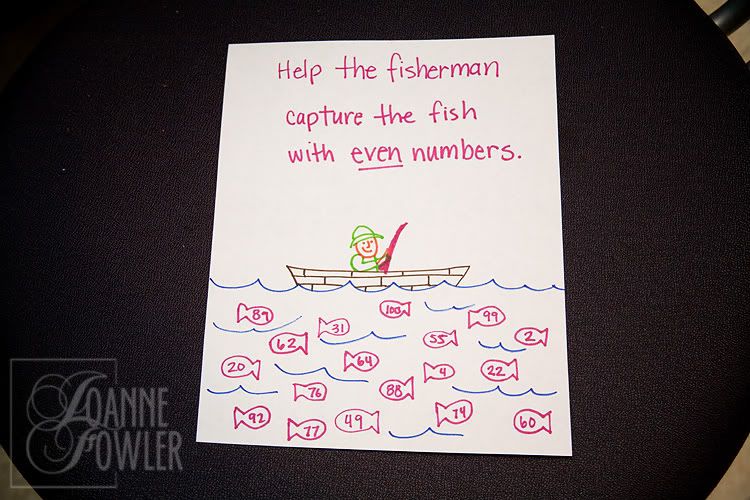 Help the fisherman
capture the fish
with even numbers.
89
31
103
99
62
55
2
20
64
4
22
76
88
92
77
49
74
60
JOANNE
FOWLER